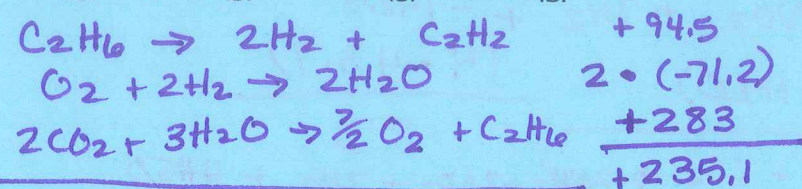 C2H6 → 2H2 + C2H2 +94.5
O2 + 2H2 → 2H2O 2 • (-71.2)
2CO2 + 3H2O → 7/2 O2 + C2H6 +283
+235.1